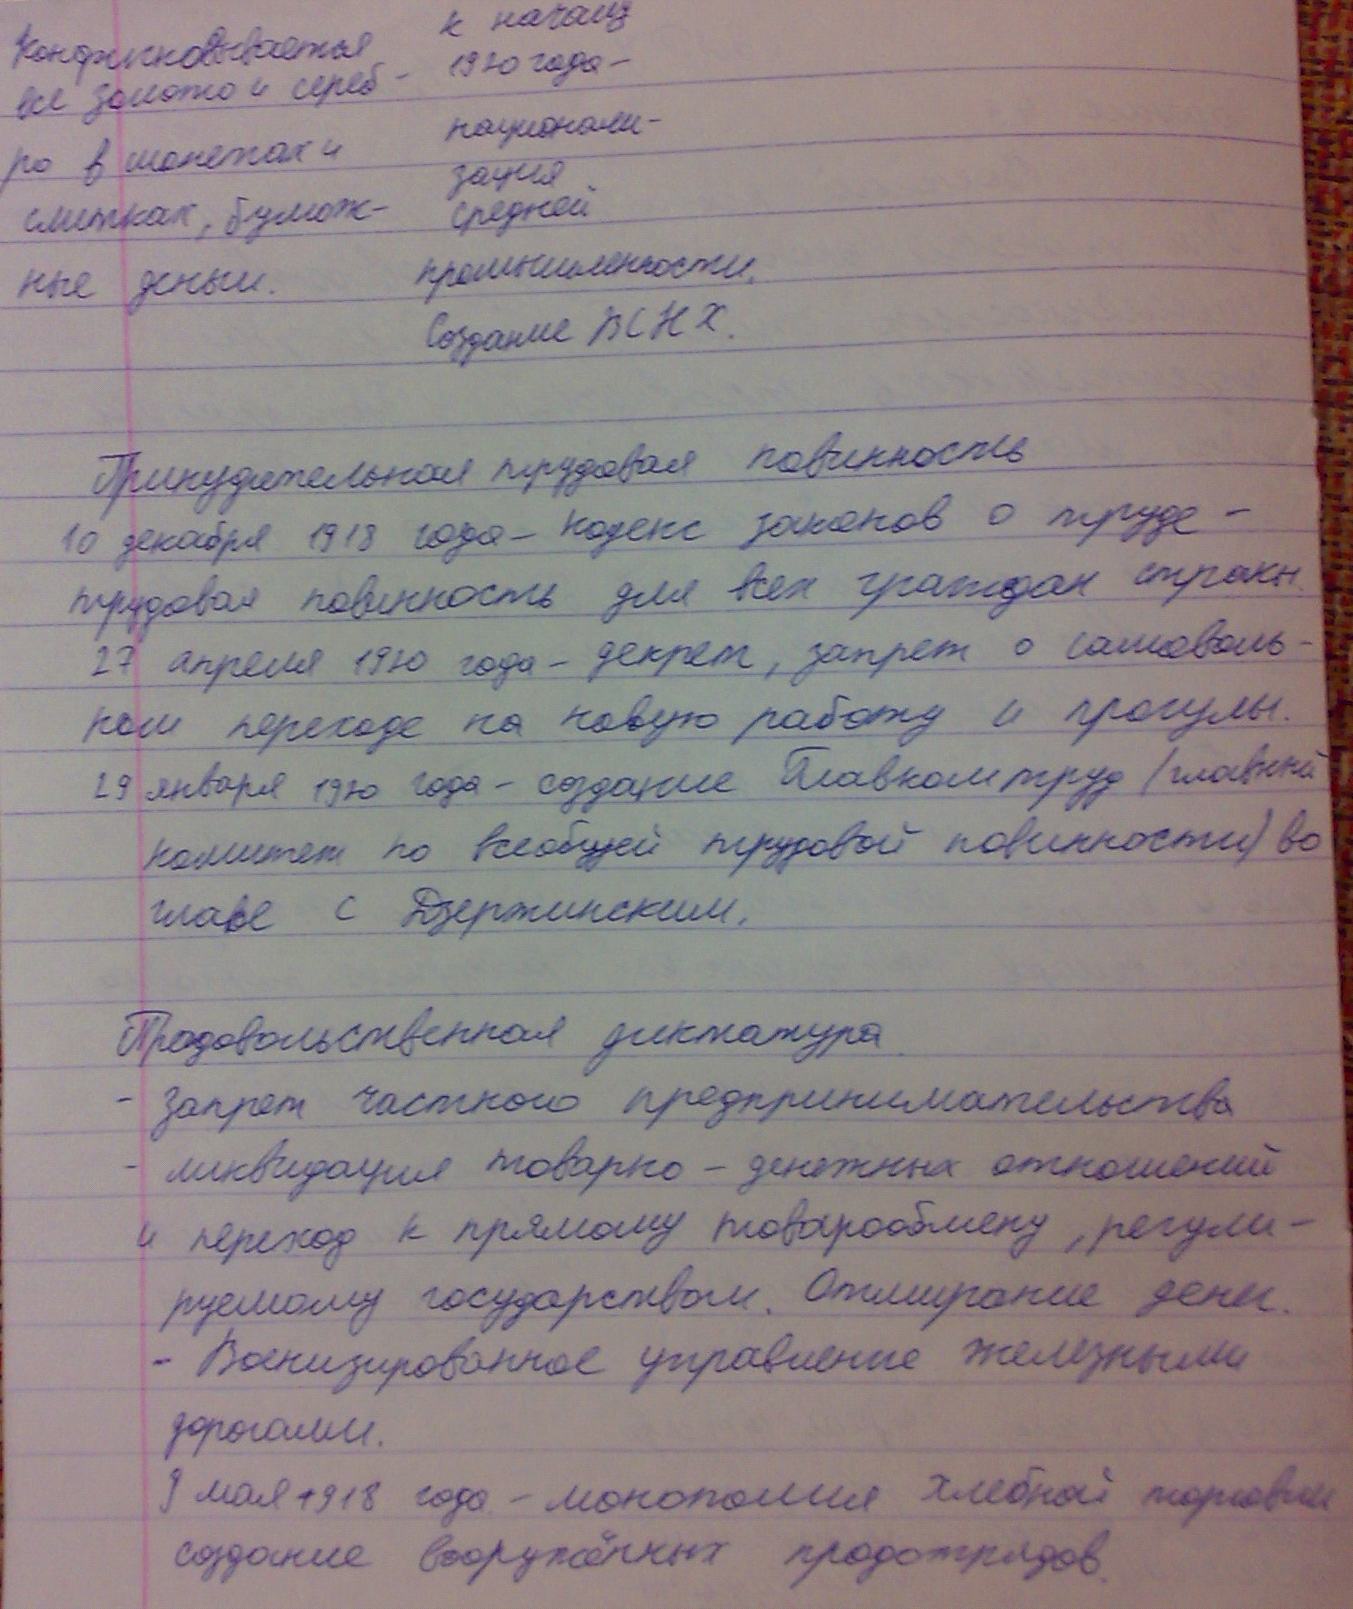 Конфисковывается
все золото и сереб-
ро в монетах и
слитках, бумаж-
ные деньги.
к началу
1920 года-
национали-
зация
средней
промышленности.
Создание ВСНХ.
Принудительная трудовая повинность
10 декабря 1918 года - Кодекс законов о труде -
трудовая повинность для всех граждан страны.
27 апреля 1920 года - декрет, запрет о самоволь-
ном переходе на новую работу и прогулы.
29 января 1920 года - создание Главкомтруд (главный
комитет по всеобщей трудовой повинности) во
главе с Дзержинским.
Продовольственная диктатура
- запрет частного предпринимательства
- ликвидация товарно - денежных отношений
и переход к прямому товарообмену, регули-
руемому государством. Отмирание денег.
- Военизированное управление железными
дорогами.
9 мая 1918 года - монополия хлебной торговли
создание вооружённых продотрядов.